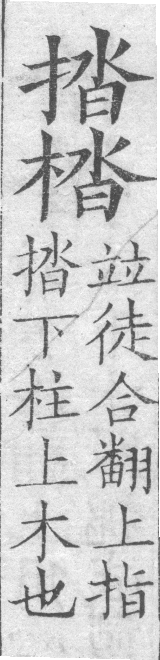 揩楷
竝徒合翻上指
揩下柱上木也